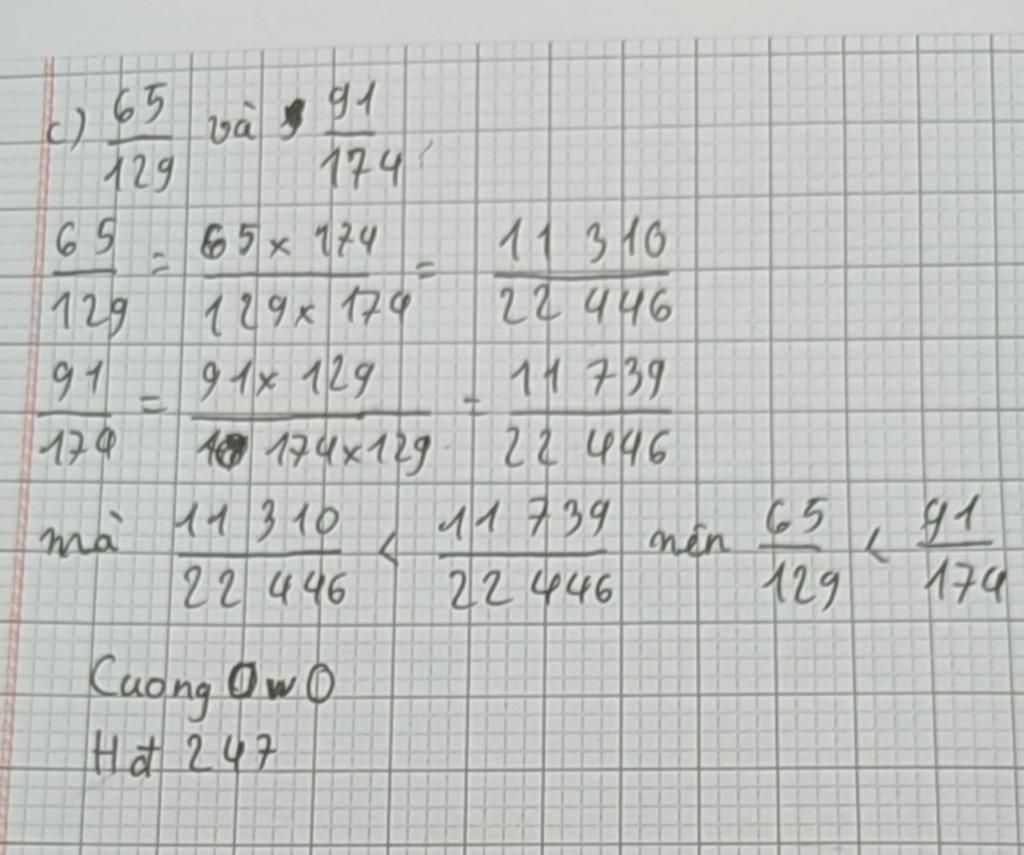 c) 65/129 và 91/174
65/129 = 65 x 174/129 x 174 = 11 310/22 446
91/174 = 91 x 129/174 x 129 = 11 739/22 446
mà 11 310/22 446 < 11 739/22 446 nên 65/129 < 91/174
Cuong OwO
Hđ 247